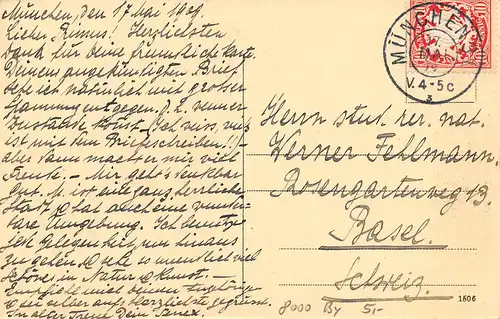 München, den 17 Mai 1909.
Lieber "Rimus"! Herzlichsten
Dank für Deine freundliche Karte.
Deinem angekündigten Brief
sehe ich natürlich mit grosser
Spannung entgegen.
Zustande kommt. (Ich weiss, viel
ist mit dem Briefschreiben!)
aber dann macht er mir viel
Freude. – Mir geht's denkbar
gut. M. ist eine ganz herrliche
Stadt, & hat auch eine wunder-
bare Umgebung. Ich benutze
jede Gelegenheit, um hinaus
zu gehen & sehe so unendlich viel
Schönes in Natur & Kunst. –
Empfiehl mich Deinen
& sei selber aufs Herzlichste gegrüsst.
In alter Treue Dein
MÜNCHEN
17. MAI
V. 4-5 c
3
10
Herrn stud. rer. nat.
Werner Fehlmann.
Rosengartenweg 13.
Basel.
Schweiz.
1506
8000 By 5,-